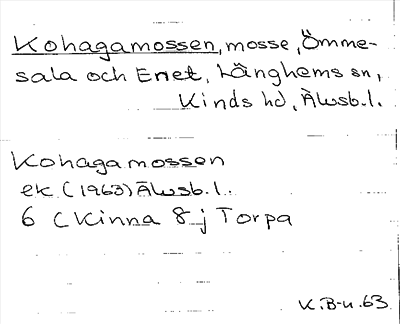 Kohagamossen, mosse, Ömme-
sala och Enet, Länghems sn,
Kinds hd, Älvsb.l.
Kohagamossen
ek (1963) Älvsb.l.
6 (Kinna 8 j Torpa
K.B-n.63